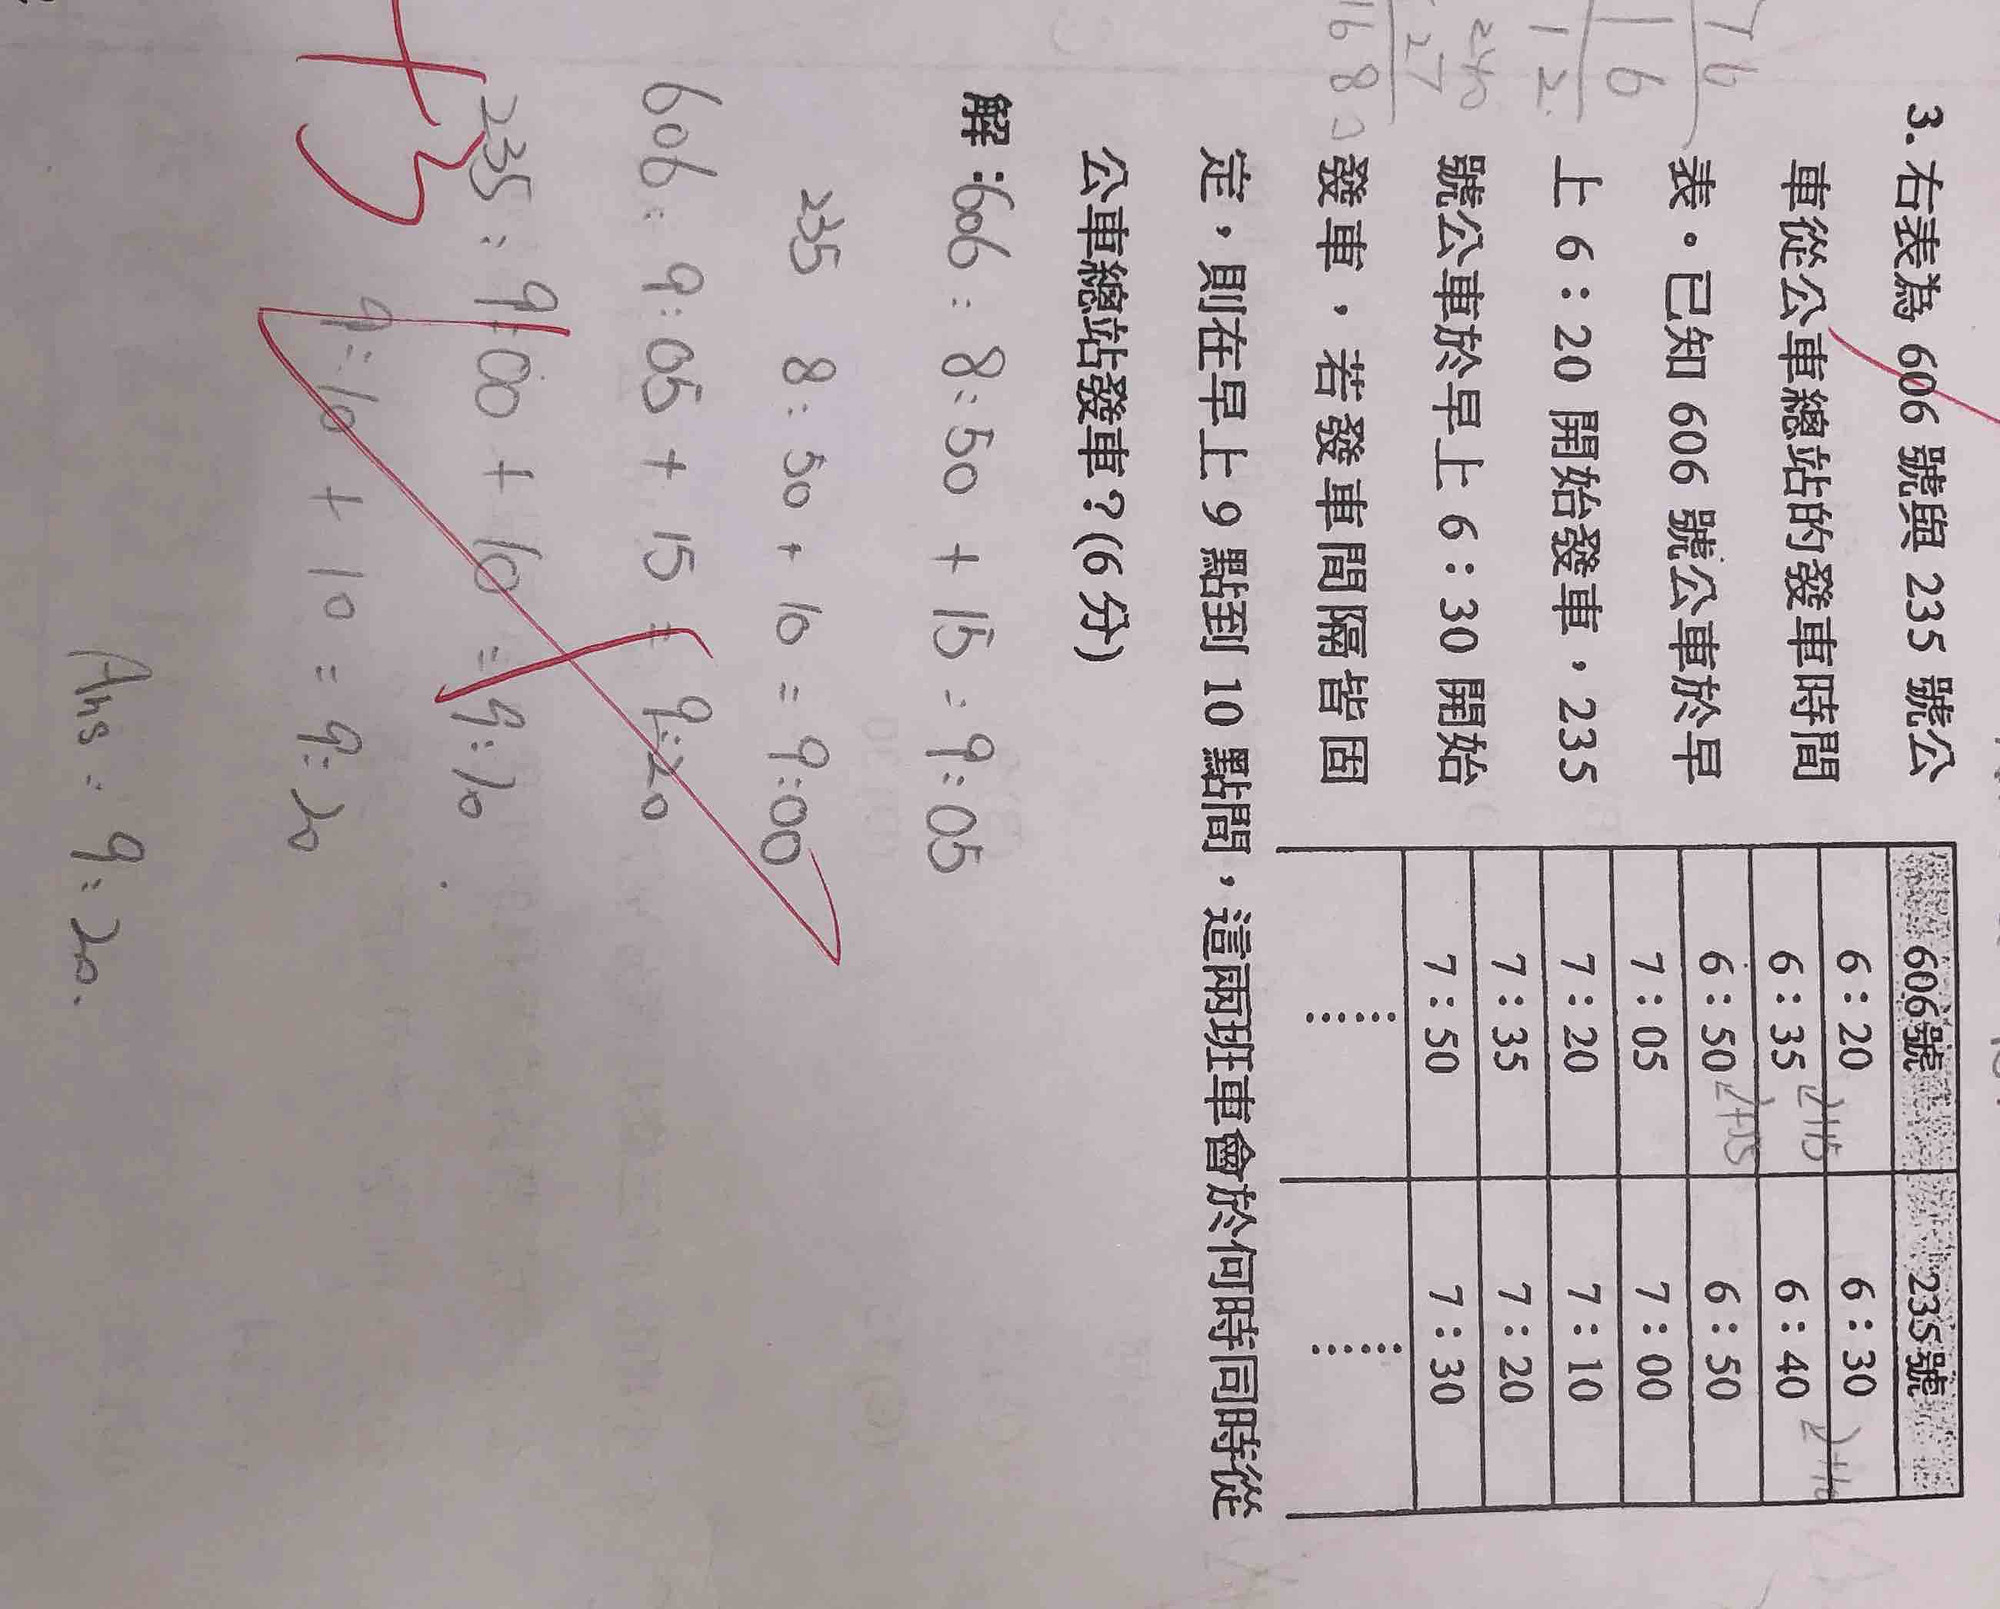 3.右表為 606 號與 235 號公
車從公車總站的發車時間
表。已知 606 號公車於早
上 6:20 開始發車,235
號公車於早上 6:30 開始
發車,若發車間隔皆固
定,則在早上 9 點到 10 點間,這兩班車會於何時同時從
公車總站發車?(6 分)
606號 235號
6:20 6:30
6:35 6:40
6:50 6:50
7:05 7:00
7:20 7:10
7:35 7:20
7:50 7:30
⋯⋯ ⋯⋯
解:606:8:50+15=9:05
235 8:50+10=9:00
606:9:05+15=9:20
235:9:00+10=9:10
9:10+10=9:20
Ans:9:20.
+3
76
16
12
240
27
168